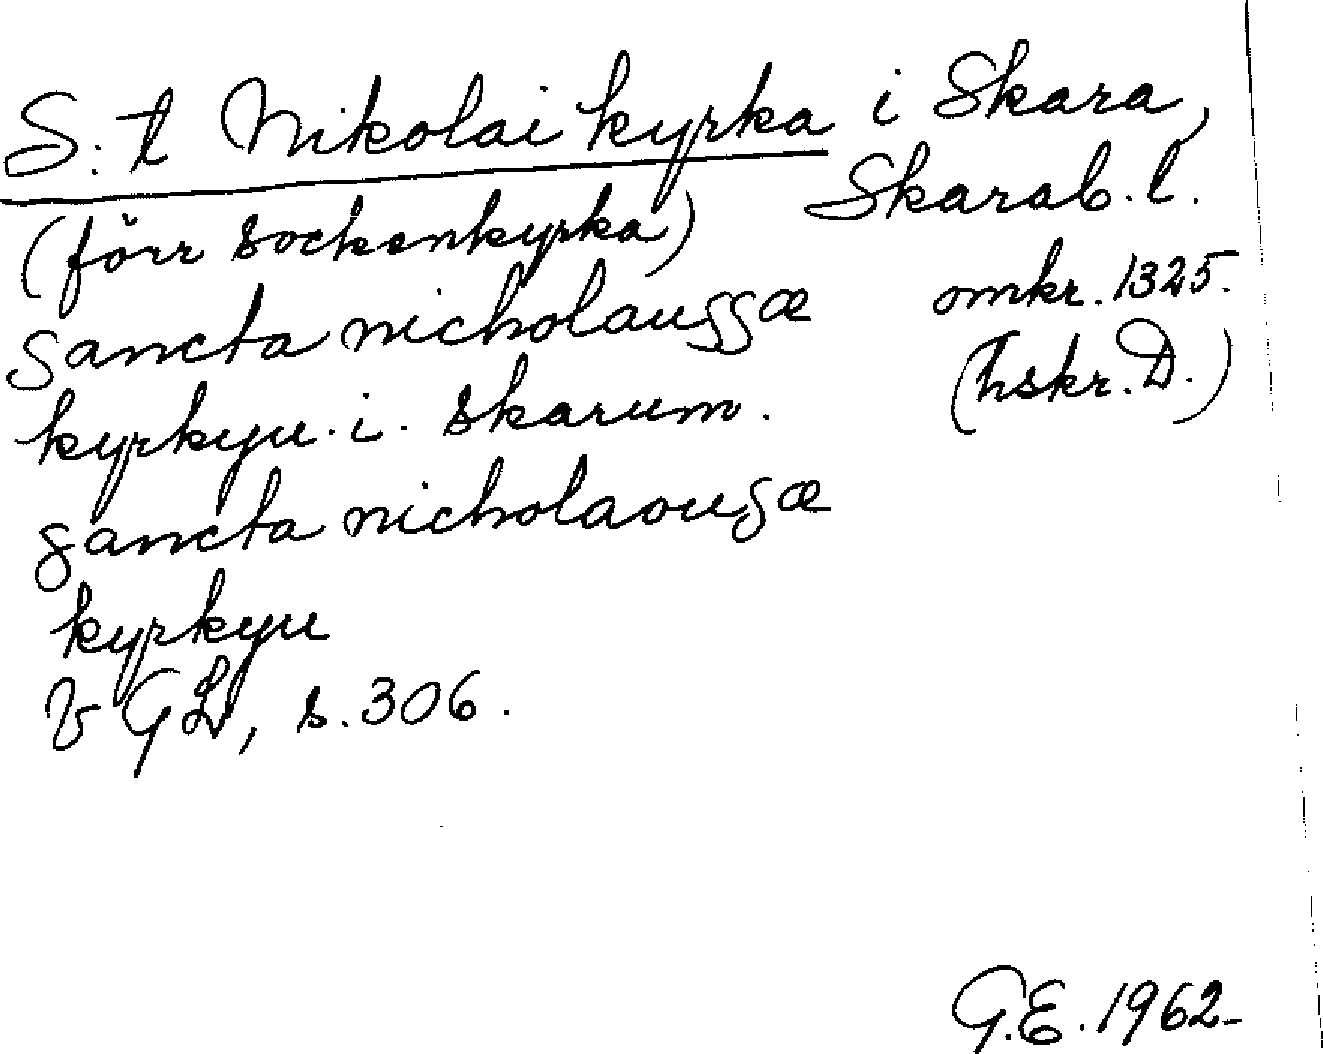 S:t Nikolai kyrka i Skara,
Skarab. l.
(förr sockenkyrka)
sancta nicholaussæ omkr. 1325.
kyrkyu. i. skarum. (hskr. D.)
sancta nicholaousæ
kyrkyu
VGL, s. 306.
G.E. 1962-